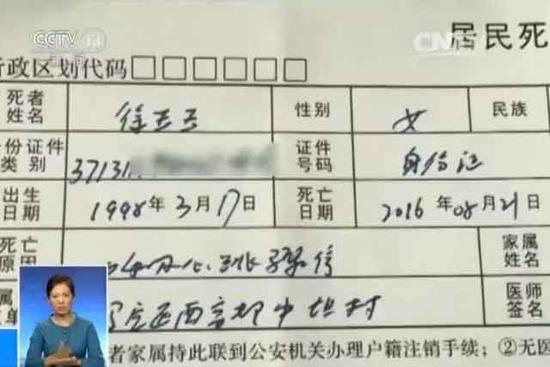 CCTV 13
新闻
CNTV
居民死
行政区划代码
死者
姓名
徐玉玉
性别
女
民族
身份证件
类别
37131
证件
号码
身份证
出生
日期
1998年3月17日
死亡
日期
2016年08月21日
死亡
原因
心跳骤停
家属
姓名
医师
签名
者家属持此联到公安机关办理户籍注销手续；②无医